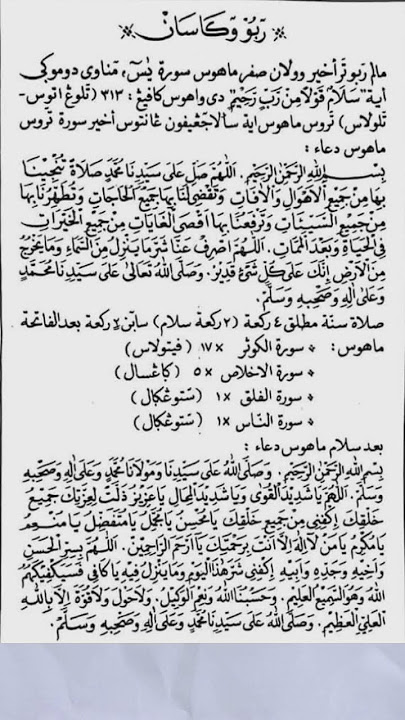 ربو وكاسان
مالم ربو ترأخير وولان صفر ماهوس سورة يس، مناوى دوموكى
أية "سلام قولا من رب رحيم" دى واهوس كافيڠ : ٣١٣ (تلوڠ اتوس-
تلولاس) تروس ماهوس اية سألاجڠيفون ڠانتوس أخير سورة تروس
ماهوس دعاء :
بِسْمِ اللهِ الرَّحْمٰنِ الرَّحِيْمِ . اَللّٰهُمَّ صَلِّ عَلٰى سَيِّدِنَا مُحَمَّدٍ صَلَاةً تُنْجِيْنَا
بِهَا مِنْ جَمِيْعِ الْأَهْوَالِ وَالْاٰفَاتِ وَتَقْضِى لَنَا بِهَا جَمِيْعَ الْحَاجَاتِ وَتُطَهِّرُنَا بِهَا
مِنْ جَمِيْعِ السَّيِّئَاتِ وَتَرْفَعُنَا بِهَا أَقْصَى الْغَايَاتِ مِنْ جَمِيْعِ الْخَيْرَاتِ
فِى الْحَيَاةِ وَبَعْدَ الْمَمَاتِ . اَللّٰهُمَّ اصْرِفْ عَنَّا شَرَّ مَا يَنْزِلُ مِنَ السَّمَاءِ وَمَا يَخْرُجُ
مِنَ الْأَرْضِ إِنَّكَ عَلٰى كُلِّ شَيْءٍ قَدِيْرٌ . وَصَلَّى اللهُ تَعَالٰى عَلٰى سَيِّدِنَا مُحَمَّدٍ
وَعَلٰى اٰلِهِ وَصَحْبِهِ وَسَلَّمَ .
صلاة سنة مطلق ٤ ركعة (٢ ركعة سلام) سابن٢ ركعة بعد الفاتحة
ماهوس : * سورة الكوثر ×١٧ (فيتولاس)
* سورة الاخلاص ×٥ (كاڠسال)
* سورة الفلق ×١ (ستوڠكال)
* سورة الناس ×١ (ستوڠكال)
بعد سلام ماهوس دعاء :
بِسْمِ اللهِ الرَّحْمٰنِ الرَّحِيْمِ . وَصَلَّى اللهُ عَلٰى سَيِّدِنَا وَمَوْلَانَا مُحَمَّدٍ وَعَلٰى اٰلِهِ وَصَحْبِهِ
وَسَلَّمَ . اَللّٰهُمَّ يَا شَدِيْدَ الْقُوٰى وَيَا شَدِيْدَ الْمِحَالِ يَا عَزِيْزُ ذَلَّتْ لِعِزَّتِكَ جَمِيْعُ
خَلْقِكَ اِكْفِنِى مِنْ جَمِيْعِ خَلْقِكَ يَا مُحْسِنُ يَا مُجَمِّلُ يَا مُتَفَضِّلُ يَا مُنْعِمُ
يَا مُكْرِمُ يَا مَنْ لَا اِلٰهَ اِلَّا اَنْتَ بِرَحْمَتِكَ يَا اَرْحَمَ الرَّاحِمِيْنَ . اَللّٰهُمَّ بِسِرِّ الْحَسَنِ
وَاَخِيْهِ وَجَدِّهِ وَاَبِيْهِ اِكْفِنِى شَرَّ هٰذَا الْيَوْمِ وَمَا يَنْزِلُ فِيْهِ يَا كَافِى فَسَيَكْفِيْكَهُمُ
اللهُ وَهُوَ السَّمِيْعُ الْعَلِيْمُ . وَحَسْبُنَا اللهُ وَنِعْمَ الْوَكِيْلُ . وَلَا حَوْلَ وَلَا قُوَّةَ اِلَّا بِاللهِ
الْعَلِيِّ الْعَظِيْمِ . وَصَلَّى اللهُ عَلٰى سَيِّدِنَا مُحَمَّدٍ وَعَلٰى اٰلِهِ وَصَحْبِهِ وَسَلَّمَ .